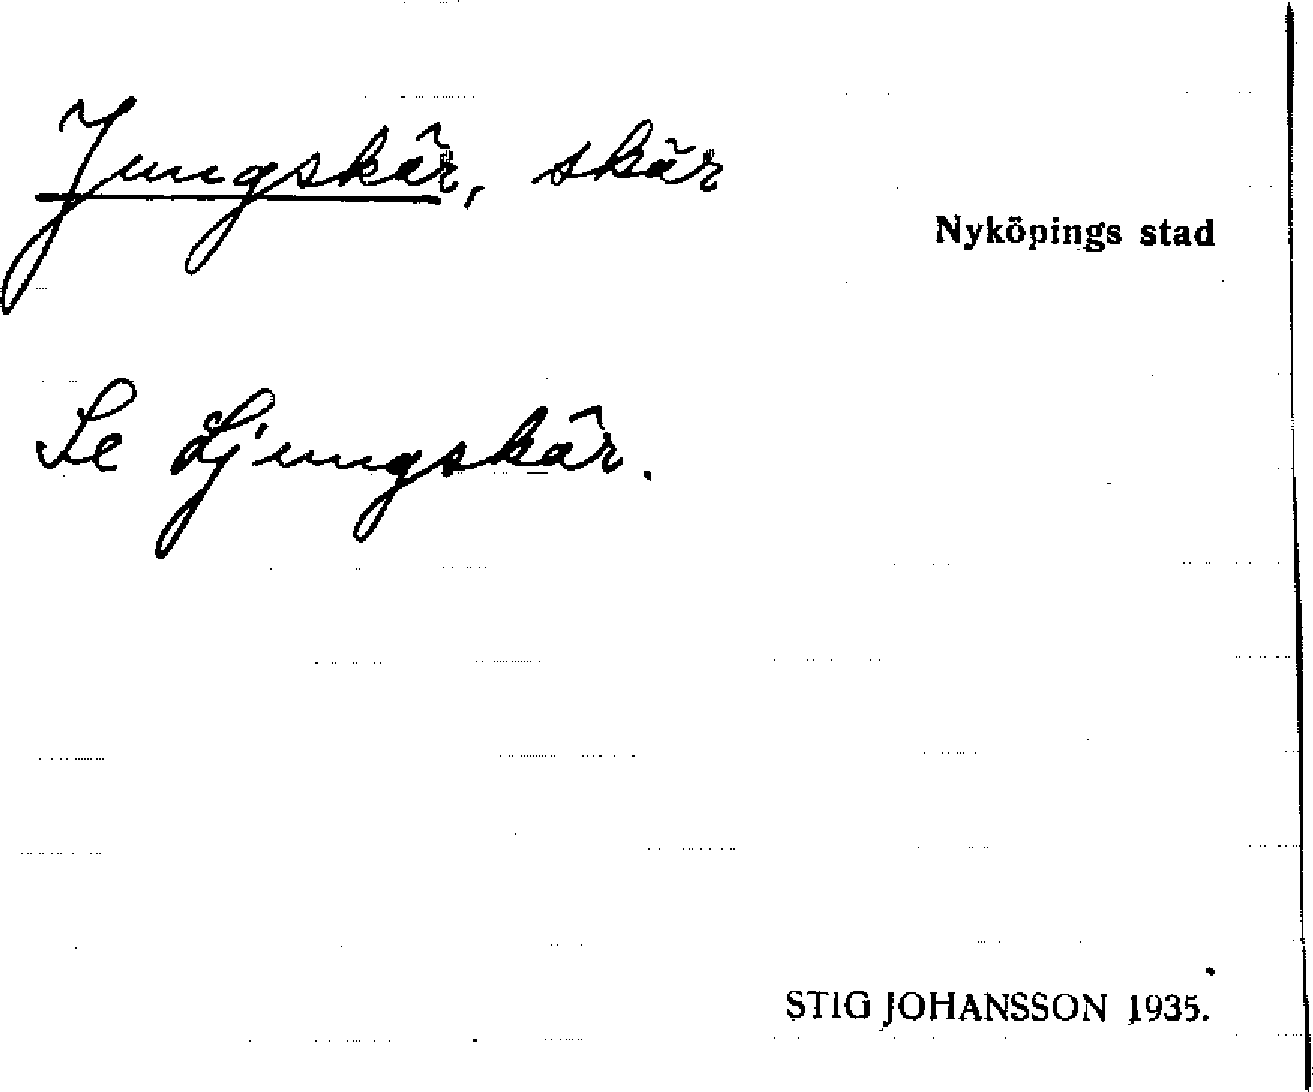 Jungskär, skär
Nyköpings stad
Se Ljungskär.
STIG JOHANSSON 1935.